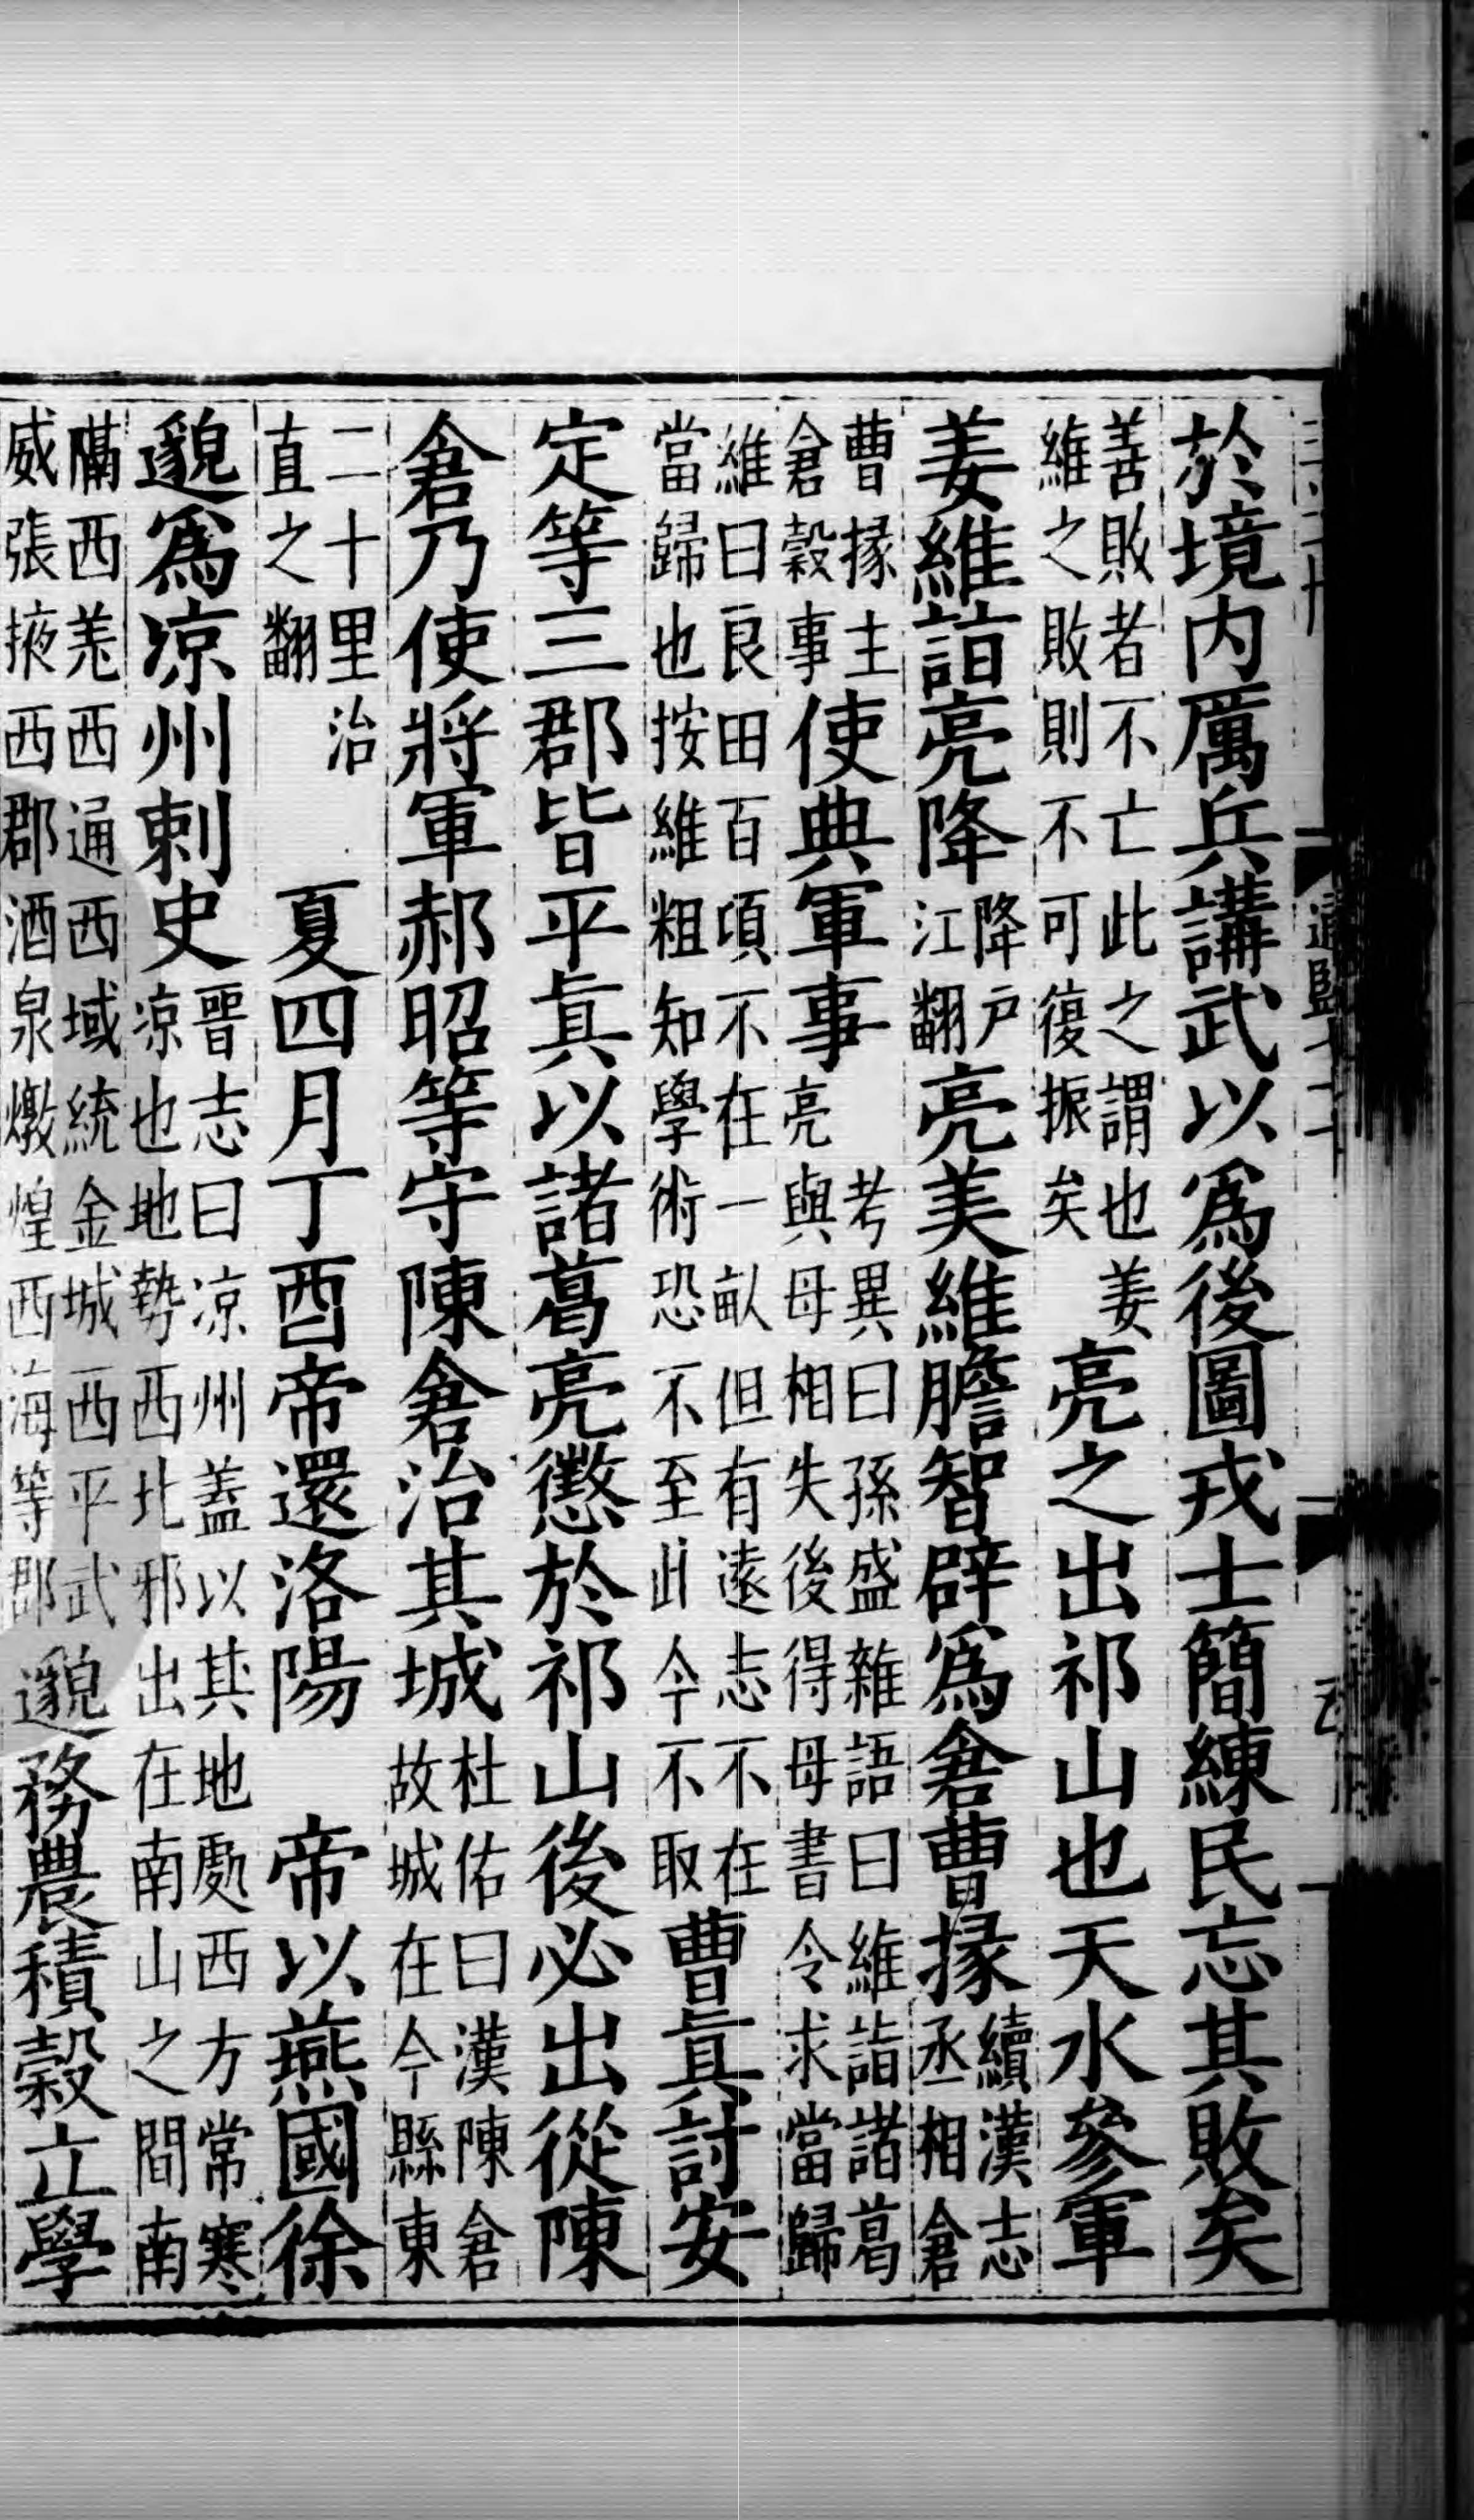 於境内厲兵講武以爲後圖戎士簡練民忘其敗矣
善敗者不亡此之謂也姜
維之敗則不可復振矣
亮之出祁山也天水參軍
姜維詣亮降
降户
江翻
亮美維膽智辟爲倉曹掾
續漢志
丞相倉
曹掾主
倉穀事
使典軍事
考異曰孫盛雜語曰維詣諸葛
亮與母相失後得母書令求當歸
維曰良田百頃不在一畝但有遠志不在
當歸也按維粗知學術恐不至此今不取
曹眞討安
定等三郡皆平眞以諸葛亮懲於祁山後必出從陳
倉乃使將軍郝昭等守陳倉治其城
杜佑曰漢陳倉
故城在今縣東
二十里治
直之翻
夏四月丁酉帝還洛陽
帝以燕國徐
邈爲凉州刺史
晉志曰凉州蓋以其地處西方常寒
凉也地勢西北邪出在南山之間南
隔西羌西通西域統金城西平武
威張掖西郡酒泉燉煌西海等郡
邈務農積穀立學